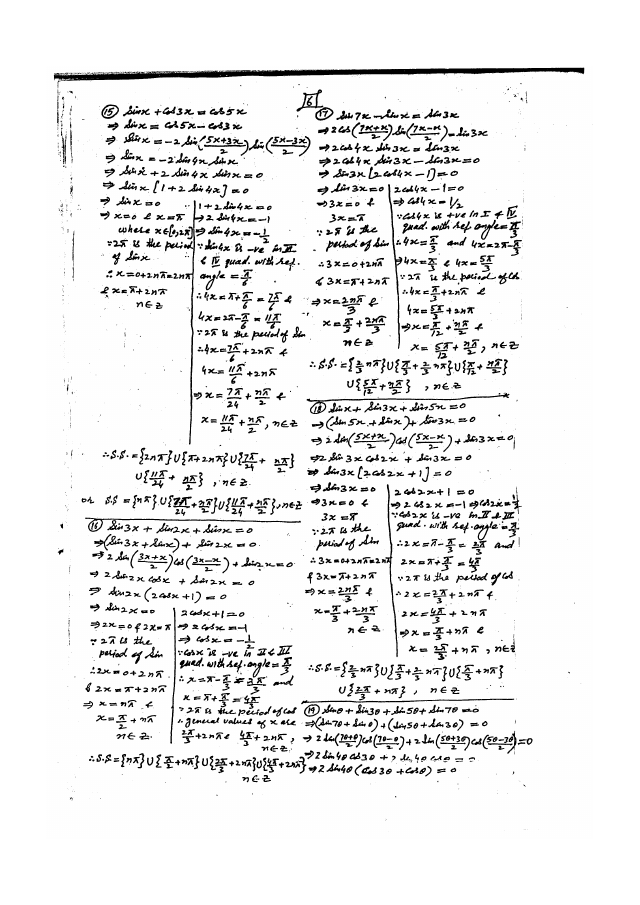 16
(15) Sinx + Cos3x = Cos5x
⇒ Sinx = Cos5x - Cos3x
⇒ Sinx = -2 Sin(5x+3x/2) Sin(5x-3x/2)
⇒ Sinx = -2 Sin4x Sinx
⇒ Sinx + 2 Sin4x Sinx = 0
⇒ Sinx [1 + 2 Sin4x] = 0
⇒ Sinx = 0
⇒ x = 0 & x = π
where x∈[0,2π]
∵ 2π is the period
of Sinx
∴ x = 0+2nπ = 2nπ
& x = π+2nπ
n∈Z
1 + 2 Sin4x = 0
⇒ 2 Sin4x = -1
⇒ Sin4x = -1/2
∵ Sin4x is -ve in III
& IV quad. with ref.
angle = π/6
∴ 4x = π+π/6 = 7π/6 &
4x = 2π-π/6 = 11π/6
∵ 2π is the period of Sin
∴ 4x = 7π/6 + 2nπ &
4x = 11π/6 + 2nπ
⇒ x = 7π/24 + nπ/2 &
x = 11π/24 + nπ/2, n∈Z
∴ S.S. = {2nπ} U {π+2nπ} U {7π/24 + nπ/2}
U {11π/24 + nπ/2}, n∈Z.
or S.S = {nπ} U {7π/24 + nπ/2} U {11π/24 + nπ/2}, n∈Z
(16) Sin3x + Sin2x + Sinx = 0
⇒ (Sin3x + Sinx) + Sin2x = 0
⇒ 2 Sin(3x+x/2) Cos(3x-x/2) + Sin2x = 0
⇒ 2 Sin2x Cosx + Sin2x = 0
⇒ Sin2x (2Cosx + 1) = 0
⇒ Sin2x = 0
⇒ 2x = 0 & 2x = π
∵ 2π is the
period of Sin
∴ 2x = 0 + 2nπ
& 2x = π + 2nπ
⇒ x = nπ &
x = π/2 + nπ
n∈Z.
2Cosx + 1 = 0
⇒ 2Cosx = -1
⇒ Cosx = -1/2
∵ Cosx is -ve in II & III
quad. with ref. angle = π/3
∴ x = π-π/3 = 2π/3 and
x = π+π/3 = 4π/3
∵ 2π is the period of Cos
∴ general values of x are
2π/3 + 2nπ & 4π/3 + 2nπ,
n∈Z.
∴ S.S = {nπ} U {π/2 + nπ} U {2π/3 + 2nπ} U {4π/3 + 2nπ}
n∈Z
(17) Sin7x - Sinx = Sin3x
⇒ 2Cos(7x+x/2) Sin(7x-x/2) = Sin3x
⇒ 2Cos4x Sin3x = Sin3x
⇒ 2Cos4x Sin3x - Sin3x = 0
⇒ Sin3x [2Cos4x - 1] = 0
⇒ Sin3x = 0
⇒ 3x = 0 &
3x = π
∵ 2π is the
period of Sin
∴ 3x = 0+2nπ
& 3x = π+2nπ
⇒ x = 2nπ/3 &
x = π/3 + 2nπ/3
n∈Z
2Cos4x - 1 = 0
⇒ Cos4x = 1/2
∵ Cos4x is +ve in I & IV
quad. with ref. angle = π/3
∴ 4x = π/3 and 4x = 2π-π/3
⇒ 4x = π/3 & 4x = 5π/3
∵ 2π is the period of Cos
∴ 4x = π/3 + 2nπ &
4x = 5π/3 + 2nπ
⇒ x = π/12 + nπ/2 &
x = 5π/12 + nπ/2, n∈Z
∴ S.S. = {2/3 nπ} U {π/3 + 2/3 nπ} U {π/12 + nπ/2}
U {5π/12 + nπ/2}, n∈Z
(18) Sinx + Sin3x + Sin5x = 0
⇒ (Sin5x + Sinx) + Sin3x = 0
⇒ 2 Sin(5x+x/2) Cos(5x-x/2) + Sin3x = 0
⇒ 2 Sin3x Cos2x + Sin3x = 0
⇒ Sin3x [2Cos2x + 1] = 0
⇒ Sin3x = 0
⇒ 3x = 0 &
3x = π
∵ 2π is the
period of Sin
∴ 3x = 0+2nπ = 2nπ
& 3x = π+2nπ
⇒ x = 2nπ/3 &
x = π/3 + 2nπ/3
n∈Z
2Cos2x + 1 = 0
⇒ 2Cos2x = -1 ⇒ Cos2x = -1/2
∵ Cos2x is -ve in II & III
quad. with ref. angle = π/3
∴ 2x = π-π/3 = 2π/3 and
2x = π+π/3 = 4π/3
∵ 2π is the period of Cos
∴ 2x = 2π/3 + 2nπ &
2x = 4π/3 + 2nπ
⇒ x = π/3 + nπ &
x = 2π/3 + nπ, n∈Z
∴ S.S. = {2/3 nπ} U {π/3 + 2/3 nπ} U {π/3 + nπ}
U {2π/3 + nπ}, n∈Z
(19) Sinθ + Sin3θ + Sin5θ + Sin7θ = 0
⇒ (Sin7θ + Sinθ) + (Sin5θ + Sin3θ) = 0
⇒ 2 Sin(7θ+θ/2) Cos(7θ-θ/2) + 2 Sin(5θ+3θ/2) Cos(5θ-3θ/2) = 0
⇒ 2 Sin4θ Cos3θ + 2 Sin4θ Cosθ = 0
⇒ 2 Sin4θ (Cos3θ + Cosθ) = 0